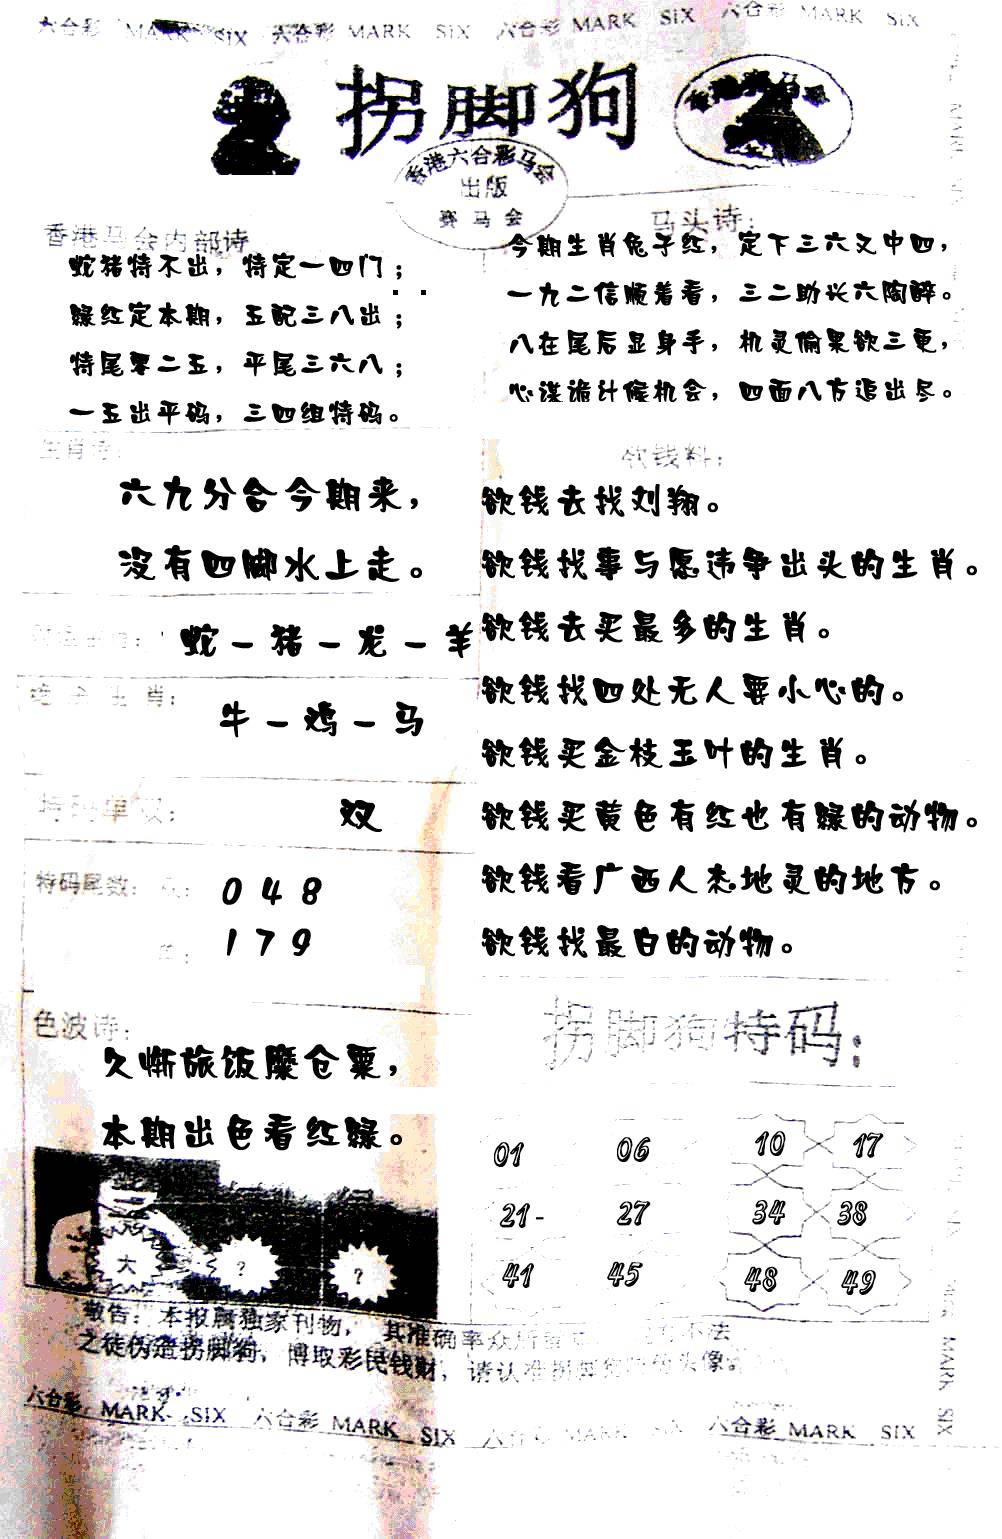 六合彩 MARK SIX 六合彩 MARK SIX 六合彩 MARK SIX 六合彩 MARK SIX
拐脚狗
香港六合彩马会
出版
赛马会
香港马会内部诗
蛇猪特不出，特定一四门；
绿红定本期，五配三八出；
特尾零二五，平尾三六八；
一五出平码，三四组特码。
马头诗：
今期生肖兔子红，定下三六又中四，
一九二信顺着看，三二助长六陶醉。
八在尾后显身手，机灵偷果欲三更，
心谋诡计候机会，四面八方追出尽。
生肖诗：
六九分合今期来，
没有四脚水上走。
蛇－猪－龙－羊
绝杀生肖：
牛－鸡－马
特码单双：
双
特码尾数：
0 4 8
1 7 9
色波诗：
久惭旅饭糜仓粟，
本期出色看红绿。
大
?
?
欲钱料：
欲钱去找刘翔。
欲钱找事与愿违争出头的生肖。
欲钱去买最多的生肖。
欲钱找四处无人要小心的。
欲钱买金枝玉叶的生肖。
欲钱买黄色有红也有绿的动物。
欲钱看广西人杰地灵的地方。
欲钱找最白的动物。
拐脚狗特码：
01 06 10 17
21- 27 34 38
41 45 48 49
敬告：本报属独家刊物，其准确率众所 不法
之徒伪造拐脚狗，博取彩民钱财，请认准拐脚狗 头像。
六合彩 MARK SIX 六合彩 MARK SIX 六合彩 MARK SIX 六合彩 MARK SIX
MARK SIX